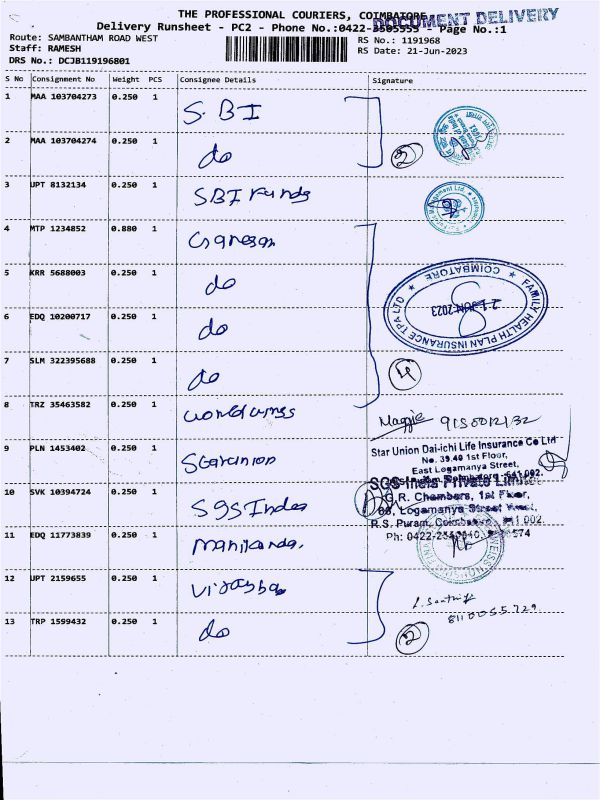 THE PROFESSIONAL COURIERS, COIMBATORE
DOCUMENT DELIVERY
Delivery Runsheet - PC2 - Phone No.:0422-3505555 - Page No.:1
Route: SAMBANTHAM ROAD WEST
RS No.: 1191968
Staff: RAMESH
RS Date: 21-Jun-2023
DRS No.: DCJB119196801
S No Consignment No Weight PCS Consignee Details Signature
1 MAA 103704273 0.250 1 S.BI
2 MAA 103704274 0.250 1 do
2
3 UPT 8132134 0.250 1 SBI Funds
4 MTP 1234852 0.880 1 Ganesan
5 KRR 5688003 0.250 1 do
COIMBATORE
21 JUN 2023
FAMILY HEALTH PLAN INSURANCE TPA LTD
6 EDQ 10200717 0.250 1 do
7 SLM 322395688 0.250 1 do
4
8 TRZ 35463582 0.250 1
9 PLN 1453402 0.250 1
Star Union Dai-ichi Life Insurance Co Ltd
No. 39.40 1st Floor,
East Logamanya Street,
10 SVK 10394724 0.250 1 SGS India
SGS India Private Limited
G.R. Chambers, 1st Floor,
Logamanya Street West,
R.S. Puram, Coimbatore 641 002.
11 EDQ 11773839 0.250 1
12 UPT 2159655 0.250 1
13 TRP 1599432 0.250 1 do
8110055729
2